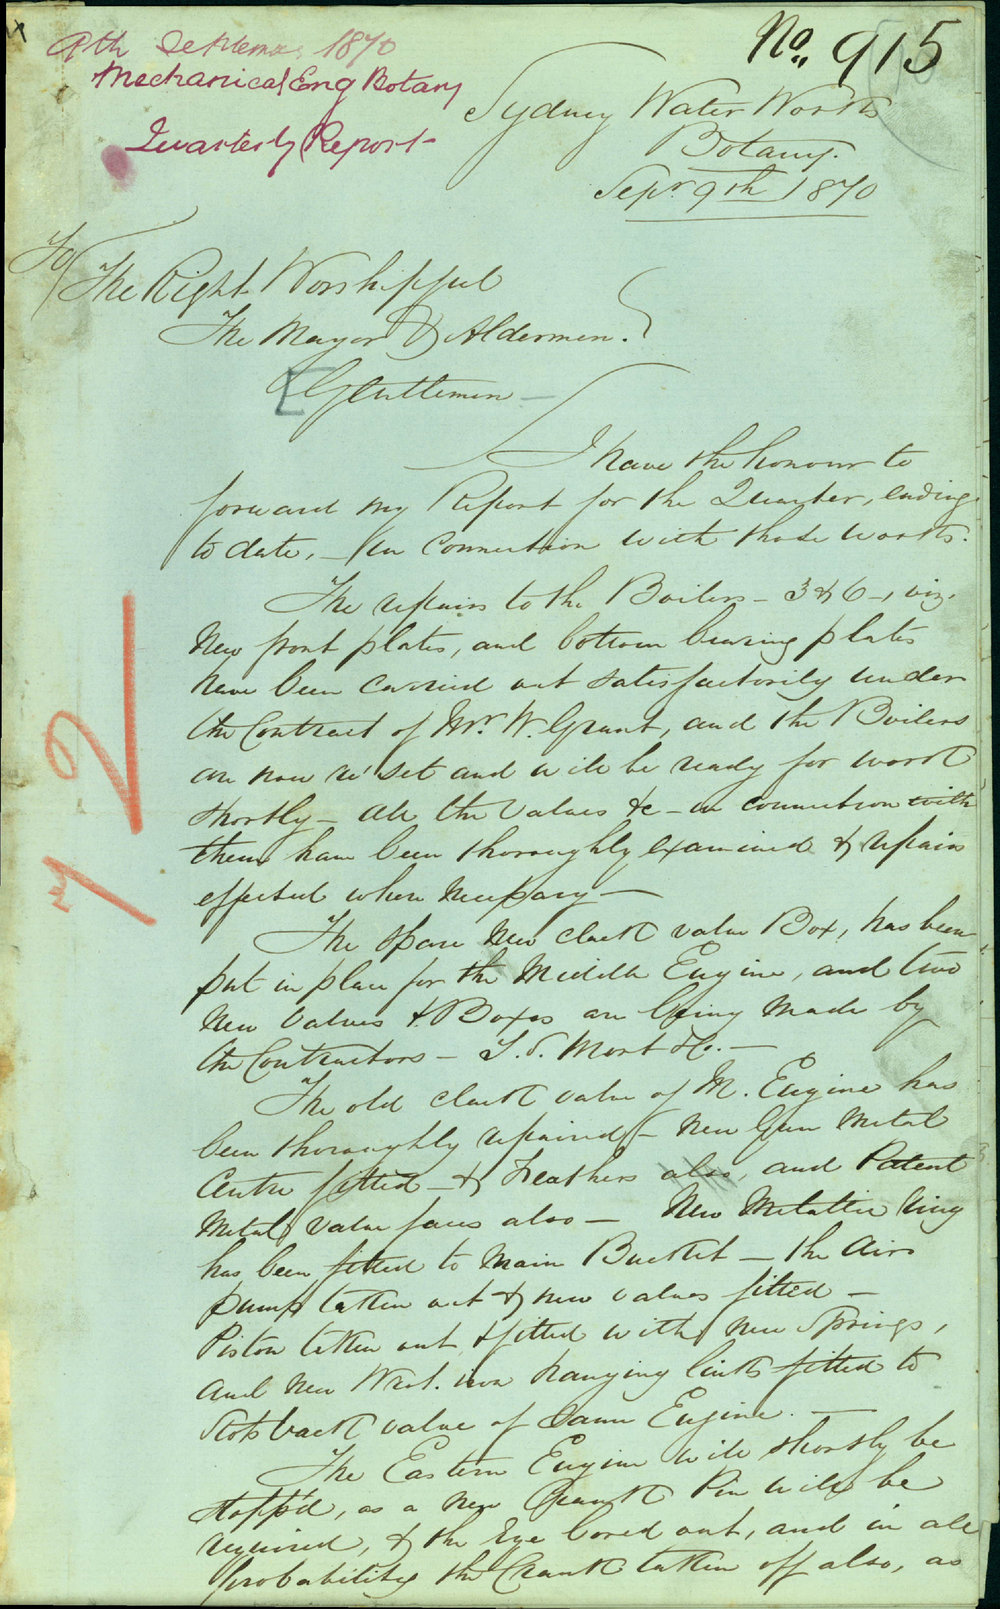 No. 915
9th September 1870
Mechanical Eng Botany
Quarterly Report
Sydney Water Works
Botany.
Sepr. 9th 1870
To/
The Right Worshipful
The Mayor & Aldermen.
Gentlemen
I have the honour to
forward my Report for the Quarter, ending
to date, - in connection with those works.
The repairs to the Boilers - 3 & 6 -, viz.
New front plates, and bottom bearing plates
have been carried out satisfactorily under
the Contract of Mr. W. Grant, and the Boilers
are now re'set and will be ready for work
shortly - All the Valves &c - in connection with
them have been thoroughly examined & repairs
effected where necessary -
The spare New clack valve Box, has been
put in place for the Middle Engine, and two
New Valves & Boxes are being made by
the Contractors - T. S. Mort & Co. -
The old clack valve of M. Engine has
been thoroughly repaired - New Gun Metal
Centre fitted - & Feathers also, and Patent
Metal, valve faces also - New Metallic ring
has been fitted to Main Bucket - the Air
pump taken out & new valves fitted -
Piston taken out & fitted with new Springs,
and new Wrt. iron hanging links fitted to
back valve of same Engine. -
The Eastern Engine will shortly be
stopp'd, as a New Crank Pin will be
required, & the Eye bored out, and in all
probability the Crank taken off also, as